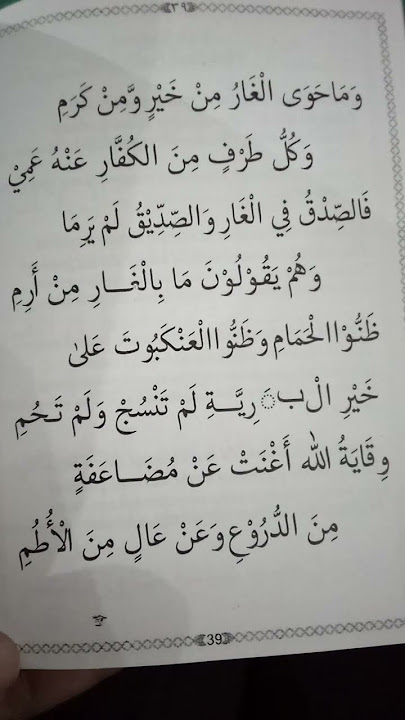 ٣٩
وَمَا حَوَى الْغَارُ مِنْ خَيْرٍ وَّمِنْ كَرَمِ
وَكُلُّ طَرْفٍ مِنَ الكُفَّارِ عَنْهُ عَمِيْ
فَالصِّدْقُ فِي الْغَارِ وَالصِّدِّيْقُ لَمْ يَرِمَا
وَهُمْ يَقُوْلُوْنَ مَا بِالْغَــارِ مِنْ أَرِمِ
ظَنُّوْا الْحَمَامِ وَظَنُّوا الْعَنْكَبُوتَ عَلىٰ
خَيْرِ الْب◌َرِيَّــةِ لَمْ تَنْسُجْ وَلَمْ تَحُمِ
وِقَايَةُ اللّٰه أَغْنَتْ عَنْ مُضَــاعَفَةٍ
مِنَ الدُّرُوْعِ وَعَنْ عَالٍ مِنَ الْأُطُمِ
39